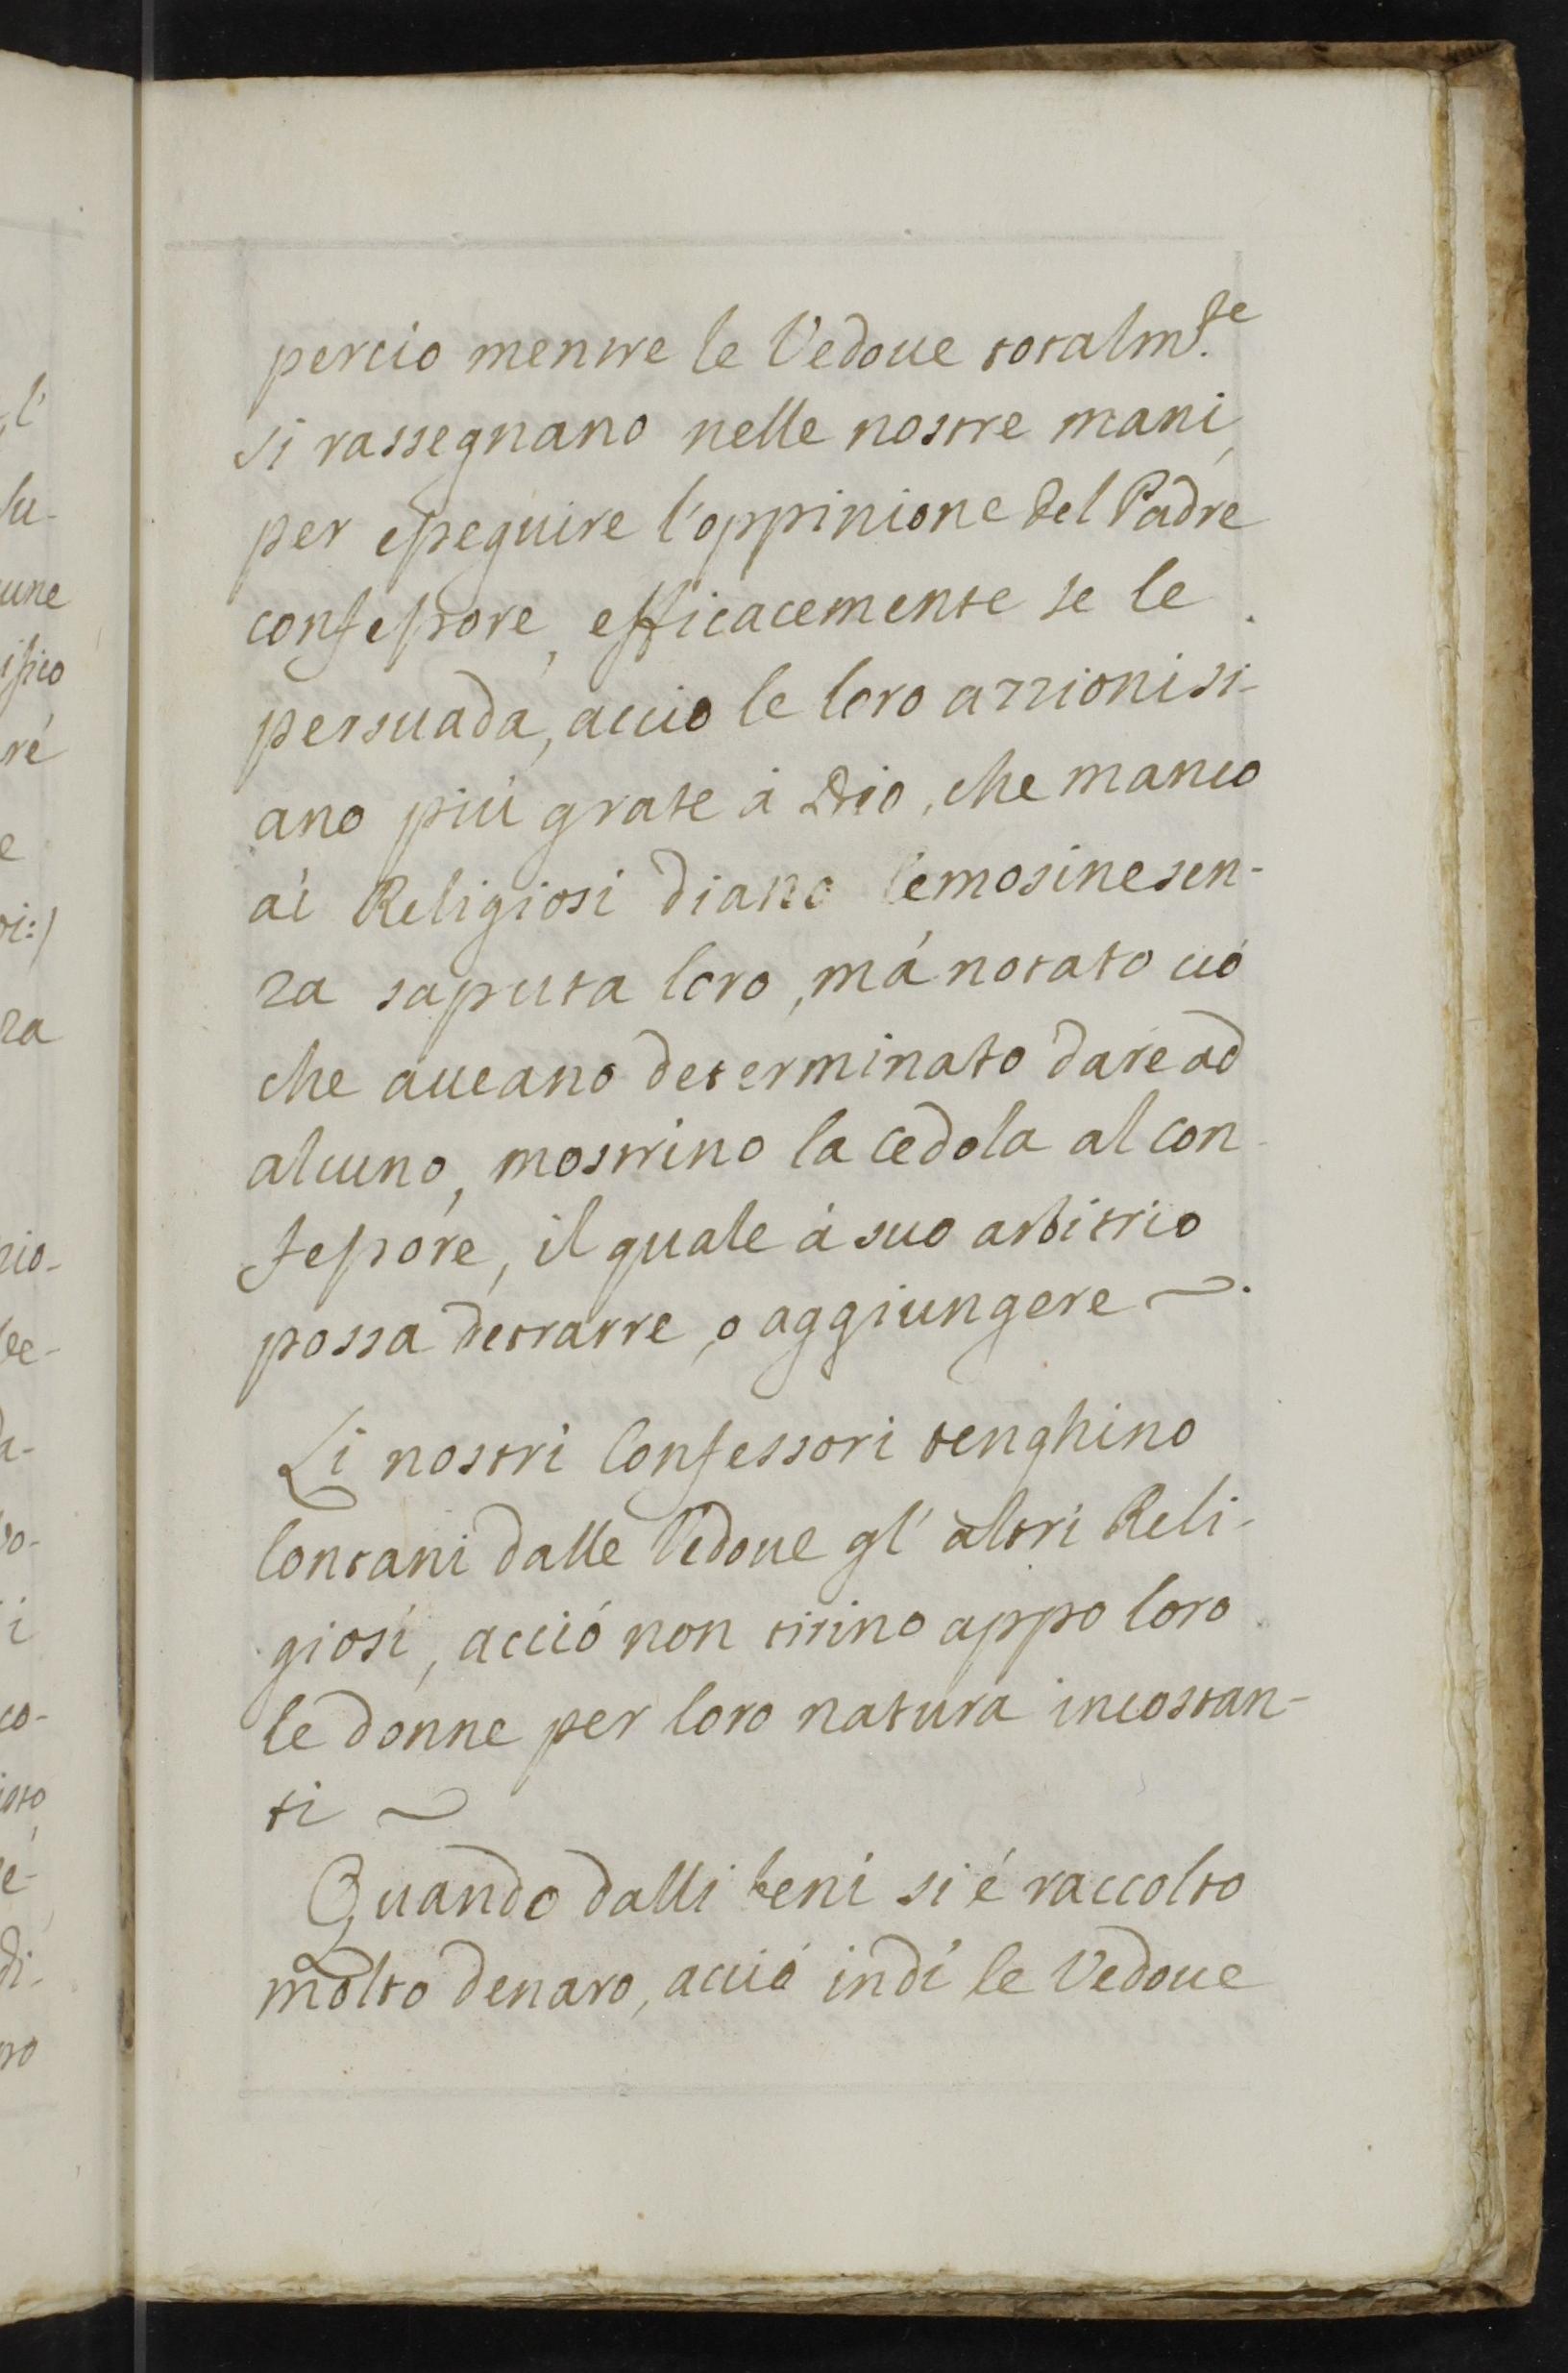 percio mentre le Vedoue totalm.te
si rassegnano nelle nostre mani,
per esseguire l'oppinione del Padre
confessore, efficacemente se le
persuada, accio le loro azzioni si-
ano più grate à Dio, che manco
ài Religiosi diano lemosine sen-
za saputa loro, má notato ció
che aueano determinato dare ad
alcuno, mostrino la cedola al con-
fessore, il quale à suo arbitrio
possa detrarre, o aggiungere ~.
Li nostri Confessori tenghino
lontani dalle Vedoue gl' altri Reli-
giosi, acció non tirino appo loro
le donne per loro natura incostan-
ti ~
Quando dalli beni si é raccolto
molto denaro, acció indi le Vedoue
l'
su-
une
ré
e
za
i
co-
é-
di-